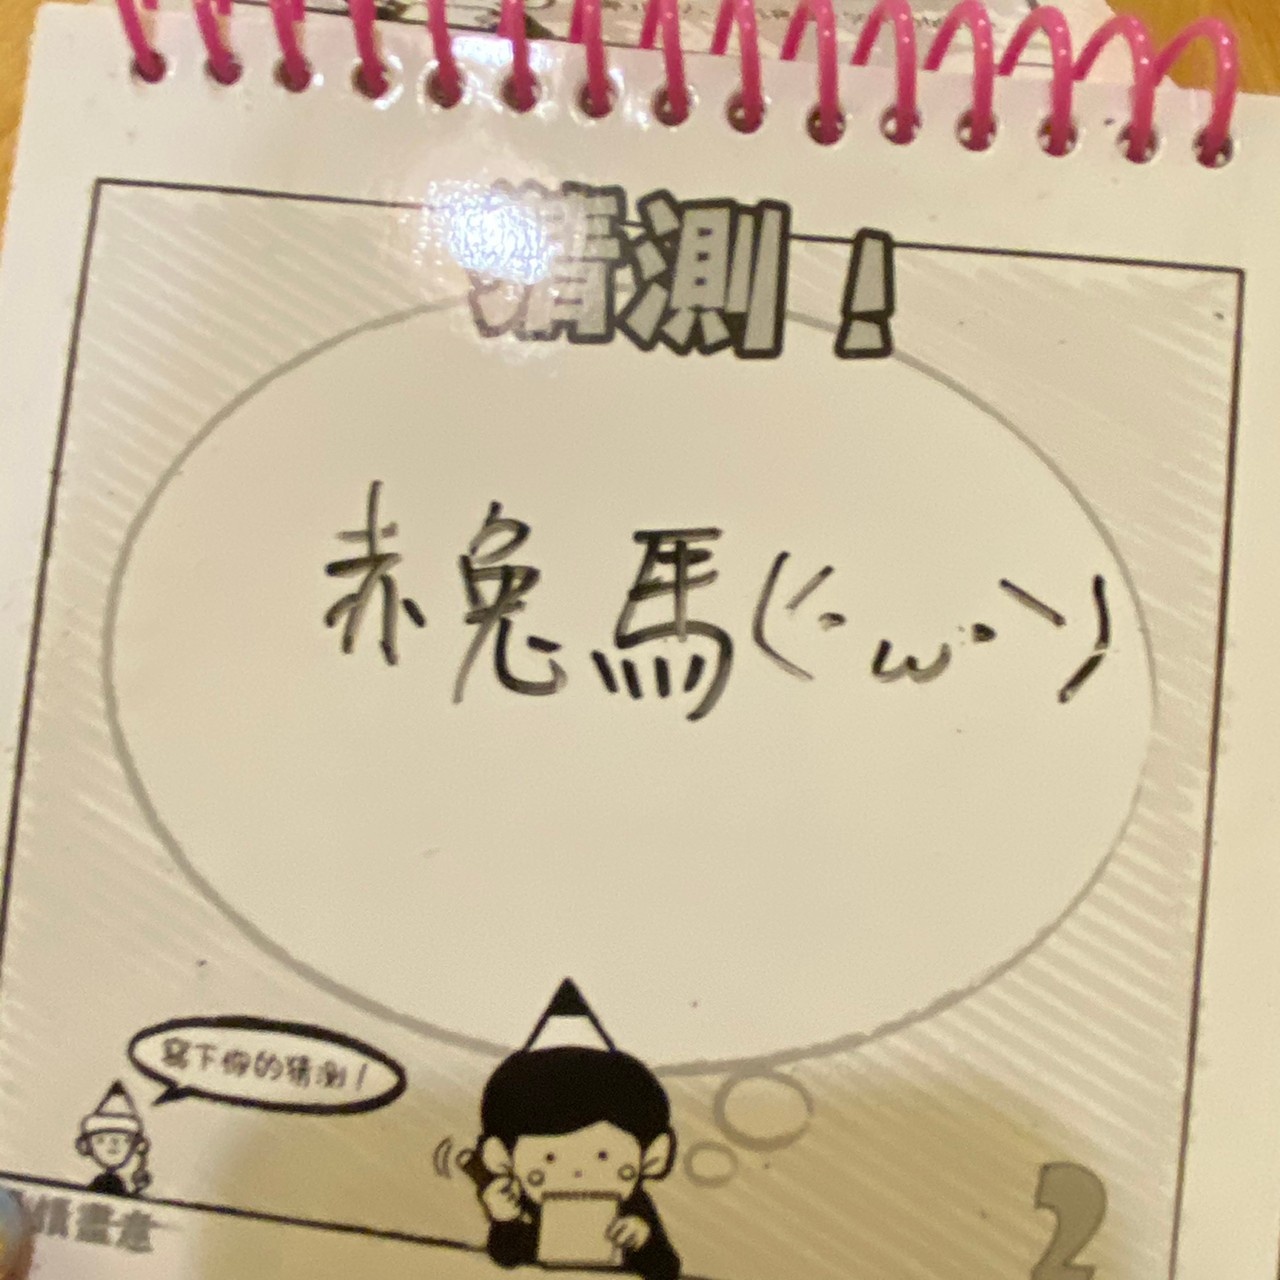 猜測！
赤兔馬(´･ω･`)
寫下你的猜測！
畫意
2